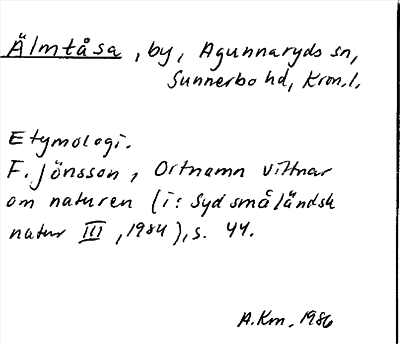 Älmtåsa, by, Agunnaryds sn,
Sunnerbo hd, Kron.l.
Etymologi.
F. Jönsson, Ortnamn vittnar
om naturen (i: Sydsmåländsk
natur III, 1984), s. 44.
A.Km. 1986